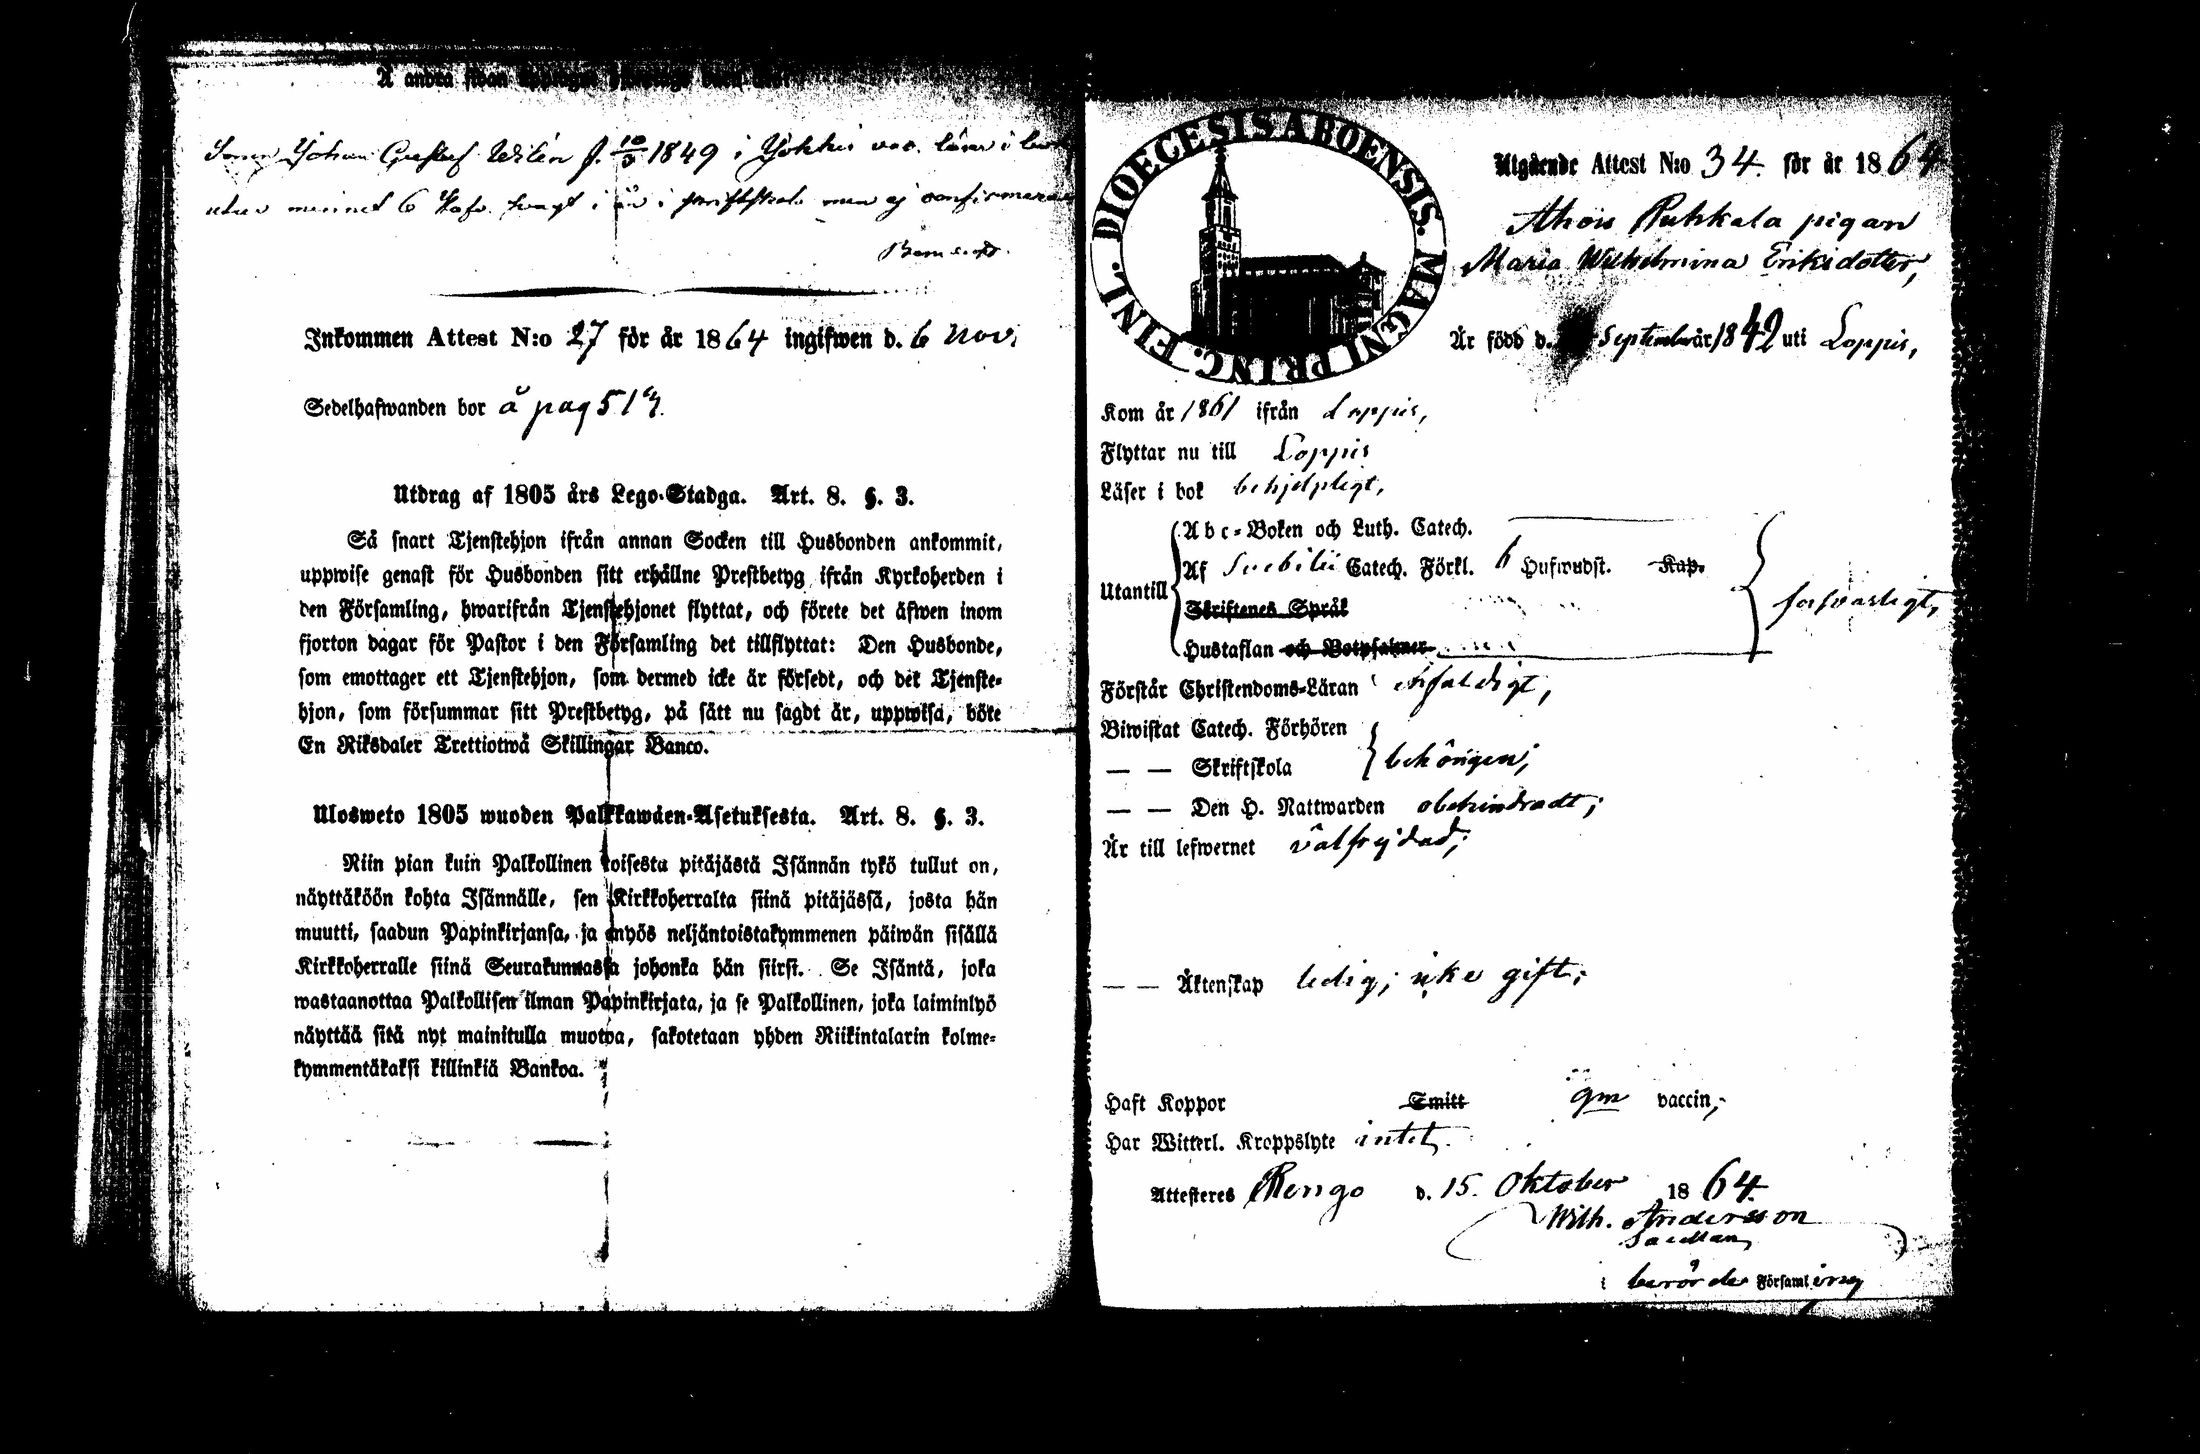 Sonen Johan Gustaf Wilén f. 10/3 1849 i Jokkis vac. läser i bok
utur minnet 6 Huf. svagt i är i skriftskola men ej confirmerad
Inkommen Attest N:o 27 för år 1864 ingifwen d. 6 Nov.
Sedelhafwanden bor å pag 517.
Utdrag af 1805 års Lego-Stadga. Art. 8. §. 3.
Så snart Tjenstehjon ifrån annan Socken till Husbonden ankommit,
uppwise genast för Husbonden sitt erhållne Prestbetyg ifrån Kyrkoherden i
den Församling, hwarifrån Tjenstehjonet flyttat, och förete det äfwen inom
fjorton dagar för Pastor i den Församling det tillflyttat: Den Husbonde,
som emottager ett Tjenstehjon, som dermed icke är försedt, och det Tjenste-
hjon, som försummar sitt Prestbetyg, på sätt nu sagdt är, uppwisa, böte
En Riksdaler Trettiotwå Skillingar Banco.
Ulosweto 1805 wuoden Palkkawäen-Asetuksesta. Art. 8. §. 3.
Niin pian kuin Palkollinen toisesta pitäjästä Isännän tykö tullut on,
näyttäköön kohta Isännälle, sen Kirkkoherralta siinä pitäjässä, josta hän
muutti, saadun Papinkirjansa, ja myös neljäntoistakymmenen päiwän sisällä
Kirkkoherralle siinä Seurakunnassa johonka hän siirsi. Se Isäntä, joka
wastaanottaa Palkollisen ilman Papinkirjata, ja se Palkollinen, joka laiminlyö
näyttää sitä nyt mainitulla muotoa, sakotetaan yhden Riikintalarin kolme-
kymmentäkaksi killinkiä Bankoa.
DIOECESIS ABOENSIS. MAGNI PRINC. FINL.
Utgående Attest N:o 34. för år 1864
Ahois Puhkala pigan
Maria Wilhelmina Eriksdotter,
Är född d. September år 1842 uti Loppis,
Kom år 1861 ifrån Loppis,
Flyttar nu till Loppis
Läser i bok behjelpligt,
Utantill
Abc-Boken och Luth. Catech.
Af Svebilii Catech. Förkl. 6 Hufwudst. Kap.
Skriftenes Språk
Hustaflan och Botpsalmer
försvarligt,
Förstår Christendoms-Läran enfaldigt,
Biwistat Catech. Förhören
— — Skriftskola behörigen;
— — Den H. Nattwarden obehindradt;
Är till lefwernet välfrejdad;
— — Äktenskap ledig; icke gift;
Haft Koppor Smitt gm vaccin;
Har Witterl. Kroppslyte intet.
Attesteres Rengo d. 15. Oktober 1864.
Wilh. Andersson
Sacellan
i berörde Församling